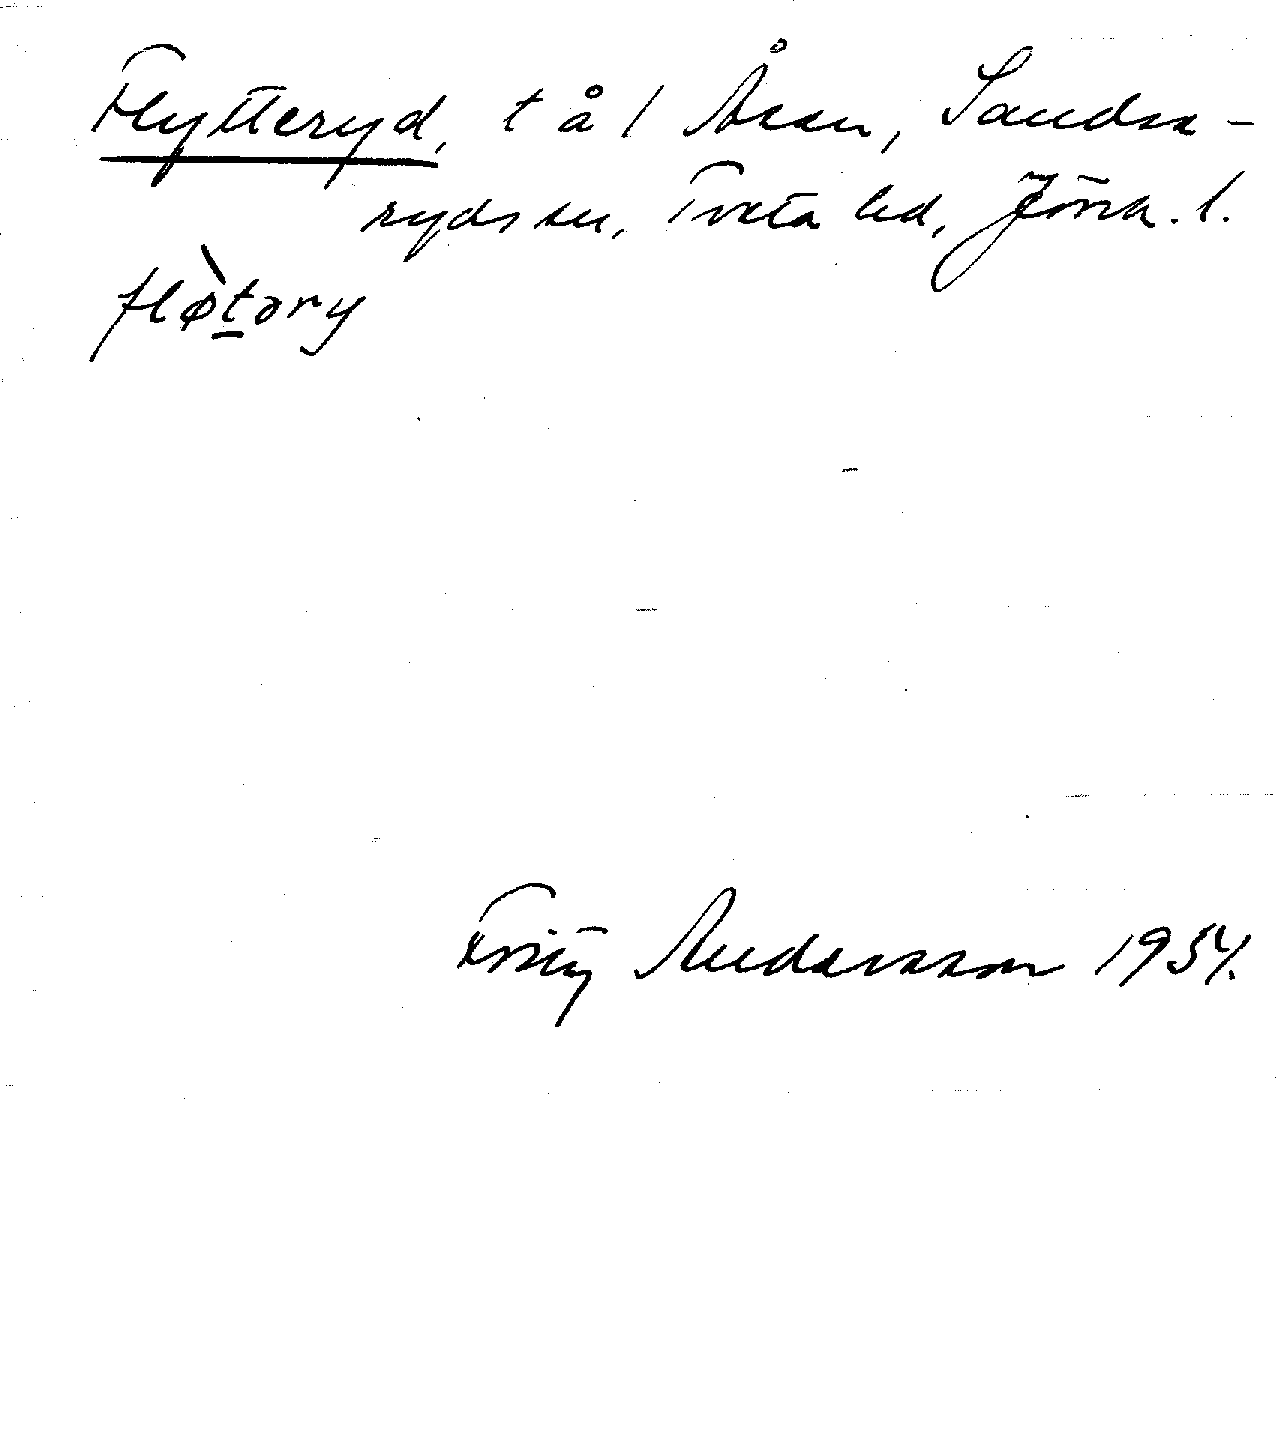 Flytteryd, t å l Åsen, Sandse-
ryds sn, Tveta hd, Jönk. l.
flø̀təry
Fritz Andersson 1934.